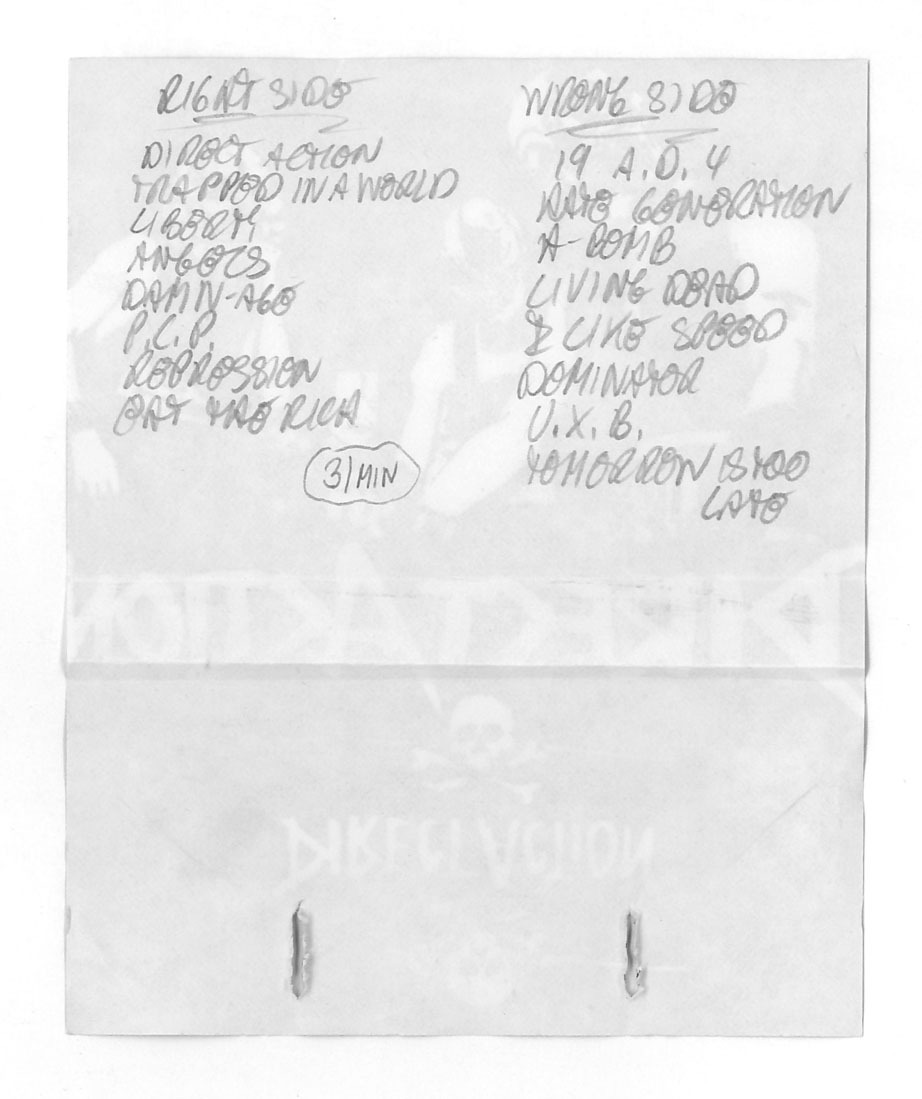 RIGHT SIDE
DIRECT ACTION
TRAPPED IN A WORLD
LIBERTY
ANGELS
DAMIN-AGE
P.C.P.
REPRESSION
EAT THE RICH
31 MIN
WRONG SIDE
19 A.D. 4
HATE GENERATION
A-BOMB
LIVING DEAD
I LIKE SPEED
DOMINATOR
U.X.B.
TOMORROW IS TOO
LATE
DIRECT ACTION
DIRECT ACTION